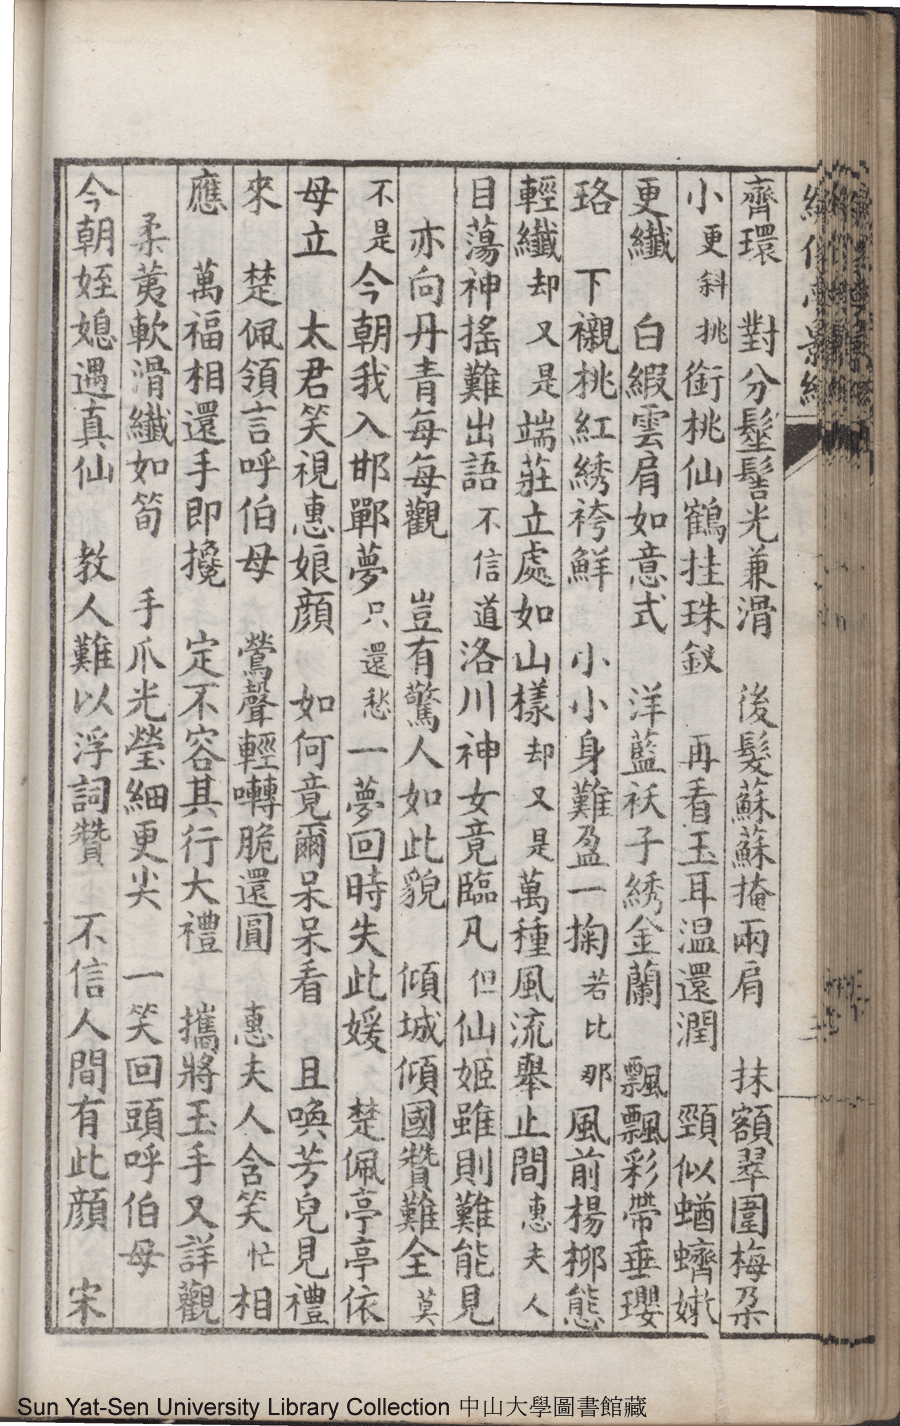 齊環　對分髽髻光兼滑　後髮蘇蘇掩兩肩　抹額翠圍梅朶
小更斜挑銜桃仙鶴挂珠釵　再看玉耳温還潤　頸似蝤蠐嫩
更纖　白緞雲肩如意式　洋藍袄子綉金蘭　飄飄彩帶垂瓔
珞　下襯桃紅綉袴鮮　小小身難盈一掬若比那風前楊柳態
輕纖却又是端莊立處如山樣却又是萬種風流舉止間惠夫人
目蕩神搖難出語不信道洛川神女竟臨凡但仙姬雖則難能見
亦向丹青每每觀　豈有驚人如此貌　傾城傾國贊難全莫
不是今朝我入邯鄲夢只還愁一夢回時失此媛　楚佩亭亭依
母立　太君笑視惠娘顔　如何竟爾呆呆看　且喚芳兒見禮
來　楚佩領言呼伯母　鶯聲輕囀脆還圓　惠夫人含笑忙相
應　萬福相還手即攙　定不容其行大禮　攜將玉手又詳觀
柔荑軟滑纖如筍　手爪光瑩細更尖　一笑回頭呼伯母
今朝姪媳遇真仙　教人難以浮詞贊　不信人間有此顔　宋
Sun Yat-Sen University Library Collection 中山大學圖書館藏